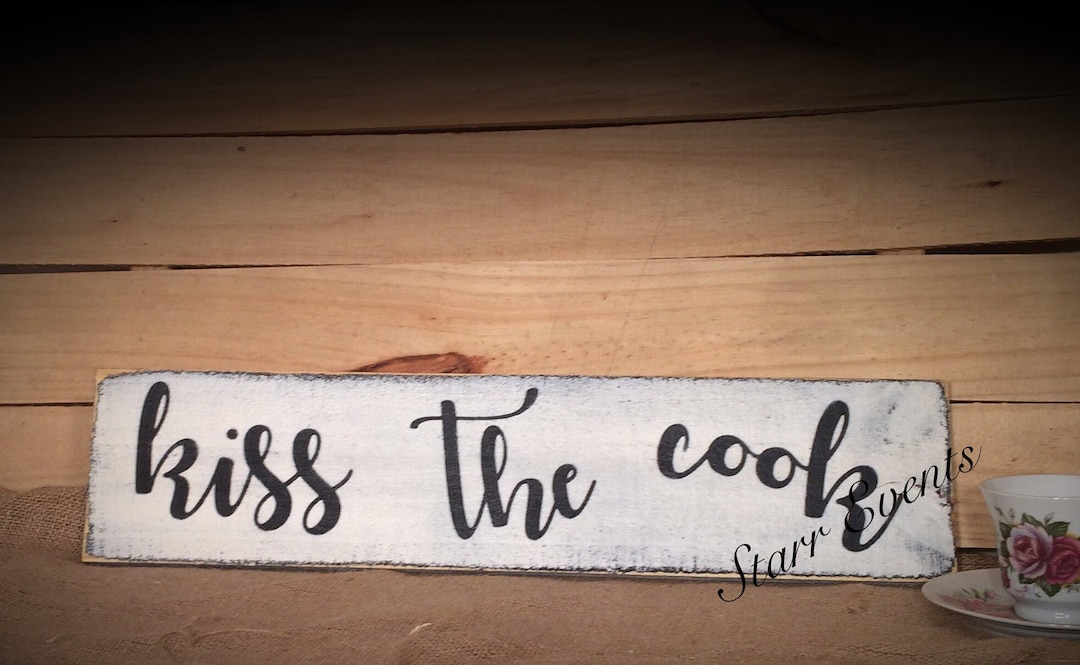 kiss the cook
Starr Events